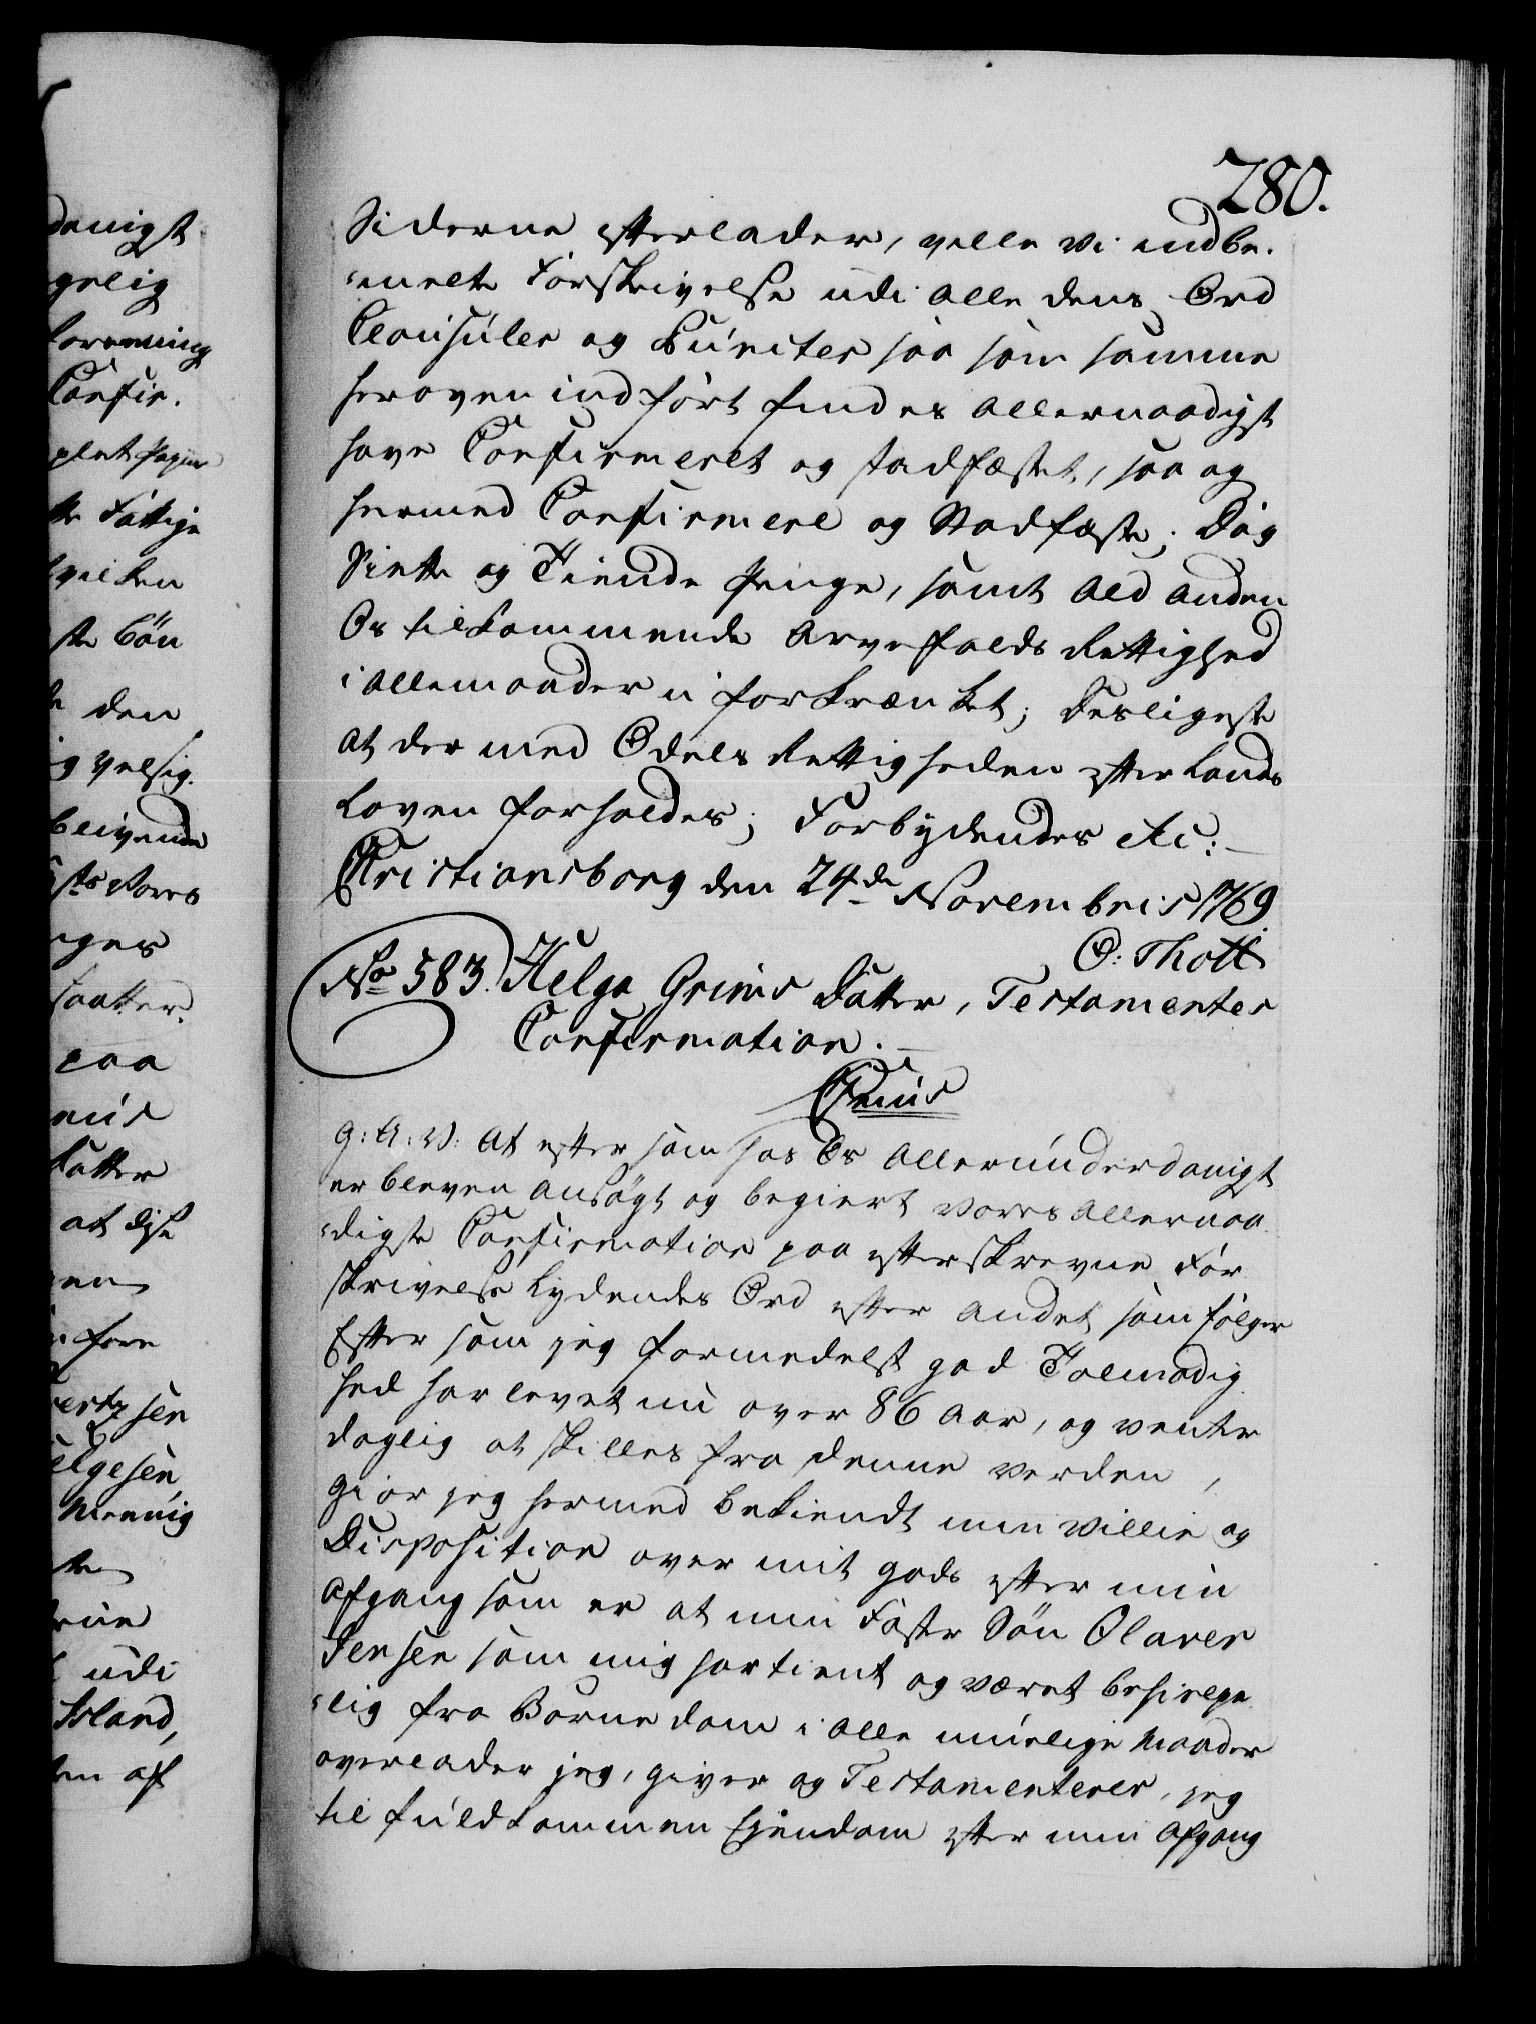 280.
Siderne efterlader, ville Vi indbe¬
¬melte Forskrivelse udi alle dens Ord
Clausuler og Puncter saa som samme
heroven indført findes allernaadigst
have Confirmeret og stadfæstet, saa og
hermed Confirmere og Stadfæste; Dog
Siette og Tiende Penge, samt ald anden
Os tilkommende Arvefalds Rettighed
i allemaader uforkrænket; Desligeste
at der med Odels Rettigheden efter Lands
Loven forholdes; Forbydendes etc:
Christiansborg den 24de Novembris 1769.
O: Thott
No 583. Helga Grims Datter, Testamentes
Confirmation.
Gratis
G: A: V: At eftersom hos Os allerunderdanigst
er bleven ansøgt og begiert Vores allernaa
¬digste Confirmation paa efterskrevne For
skrivelse lydendes Ord efter andet som følger
Efter som jeg formedelst god Tolmodig
hed har levet nu over 86 Aar, og venter
daglig at skilles fra denne Verden,
giør jeg hermed bekiendt min Villie og
Disposition over mit gods efter min
Afgang som er at min Foster Søn Olaver
Jensen som mig har tient og været behielpe
¬lig fra Barnedom i alle muelige Maader
overlader jeg, giver og Testamenterer, jeg
til fuldkommen Ejendom efter min Afgang
danigst
gelig
Confir.
plet Papiir
Fattige
hvilken
ste Bøn
den
og velsig.
blivende
Vores
nges
paa
Datter
at disse
sen
elgesen
udi
Island,
af